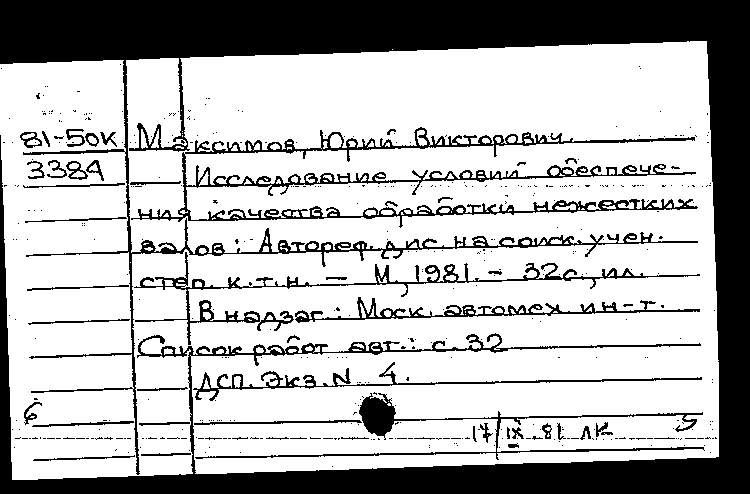 81-50к Максимов, Юрий Викторович.
3384 Исследование условий обеспече-
ния качества обработки нежестких
валов: Автореф. дис. на соиск. учен.
степ. к.т.н. – М, 1981. – 32с., ил.
В надзаг.: Моск. автомех. ин-т.
Список работ авт.: с. 32
ДСП. Экз. N 4.
6
17/IX.81 ЛК